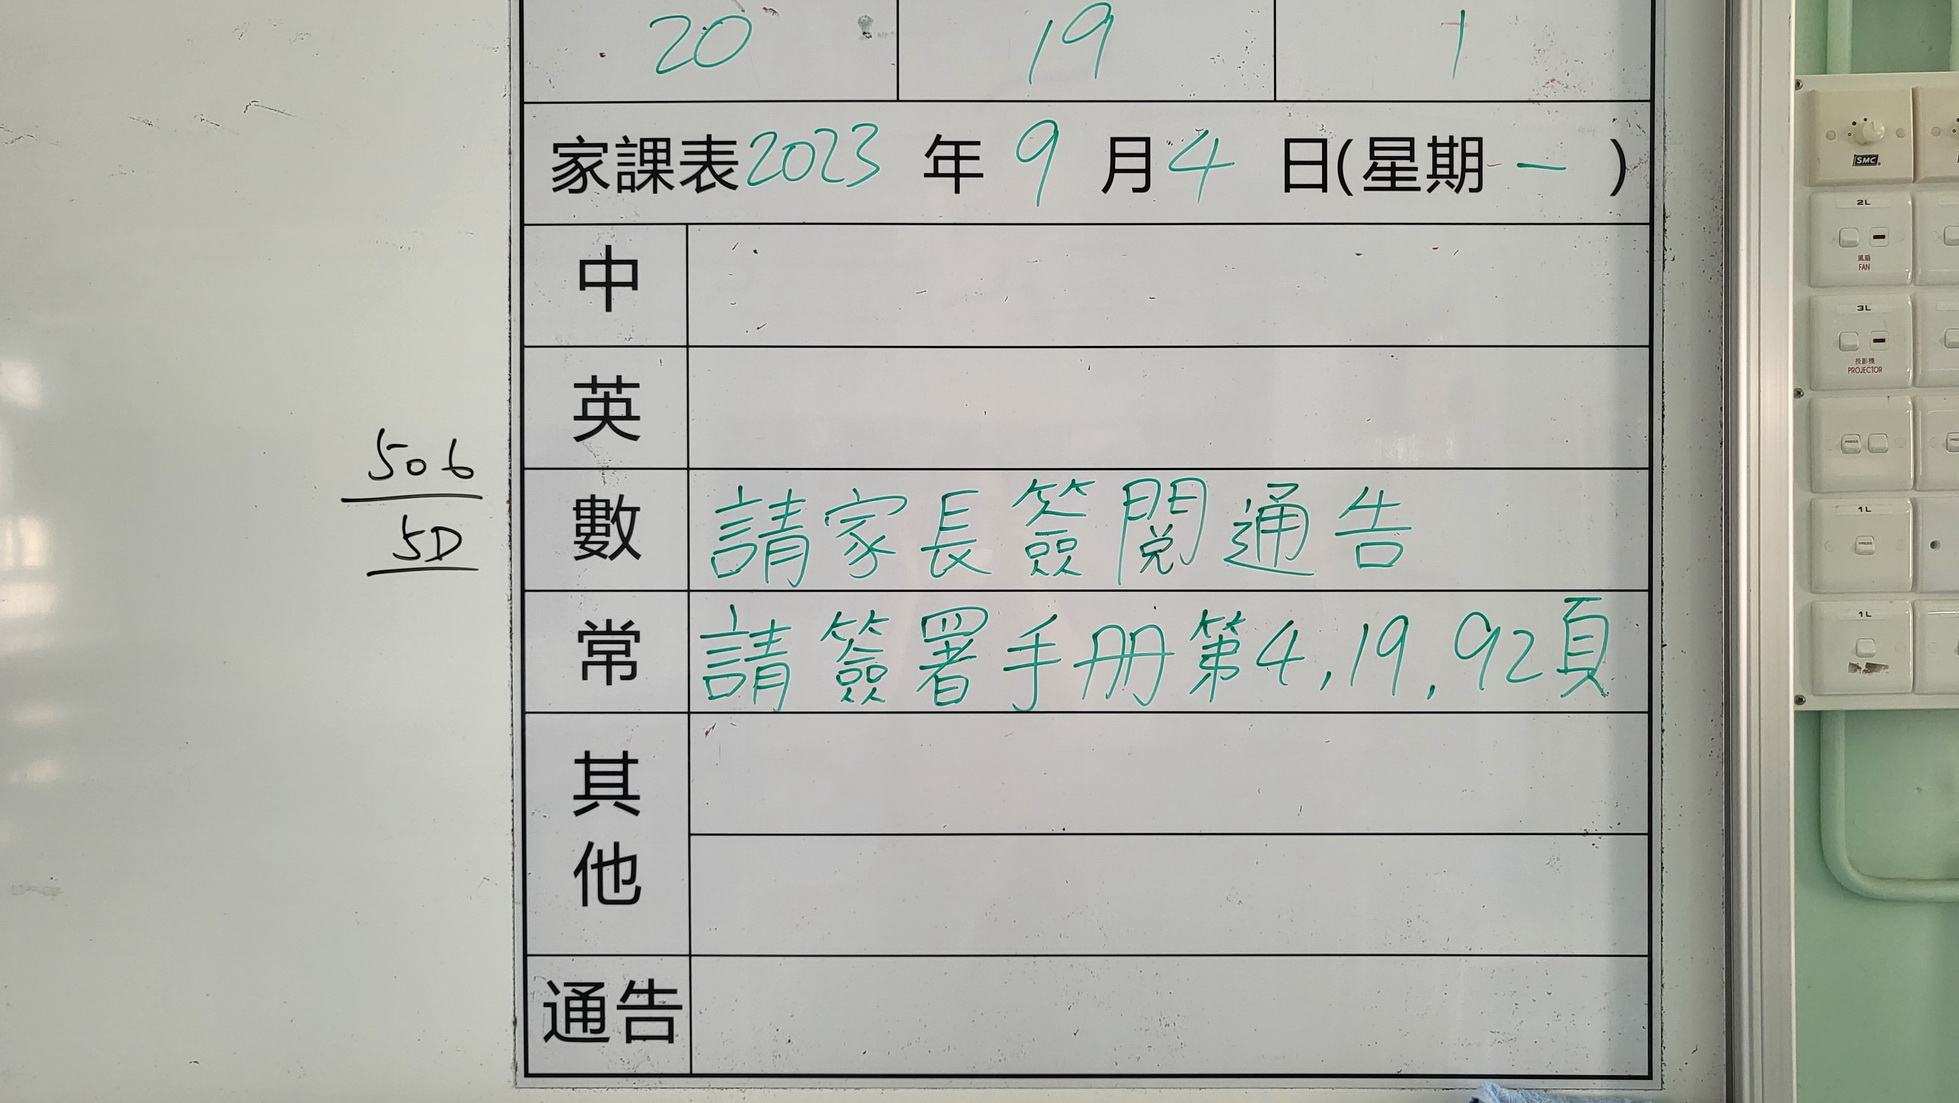 20 19 1
家課表2023 年 9 月 4 日(星期 一 )
中
英
數 請家長簽閱通告
常 請簽署手册第4,19,92頁
其他
通告
506
5D
SMC
2L
風扇
FAN
3L
投影機
PROJECTOR
1L
PRESS
1L